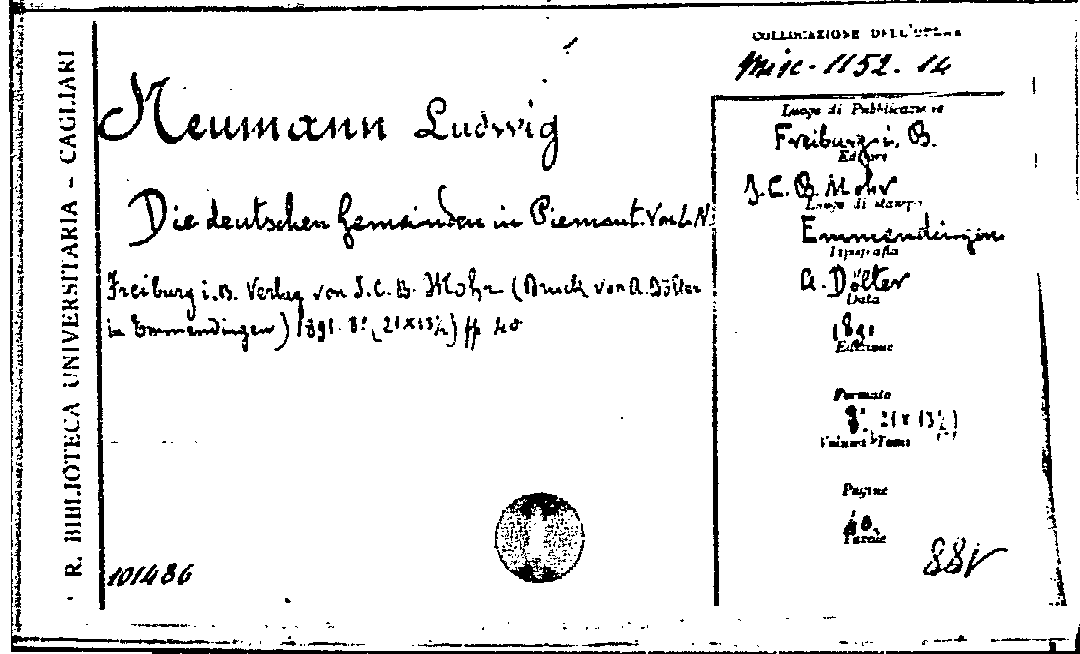 R. BIBLIOTECA UNIVERSITARIA - CAGLIARI
COLLOCAZIONE DELL'OPERA
Misc. 1152. 14
Neumann Ludwig
Die deutschen Gemeinden in Piemont. Von L. N.
Freiburg i. B. Verlag von J. C. B. Mohr (Druck von A. Dölter
in Emmendingen) 1891. 8º (21x13½) pp 40
Luogo di Pubblicazione
Freiburg i. B.
Editore
J. C. B. Mohr
Luogo di stampa
Emmendingen
Tipografia
A. Dölter
Data
1891
Edizione
Formato
8º 21 x 13½)
Volume Tomo
Pagine
40.
Tavole
101486